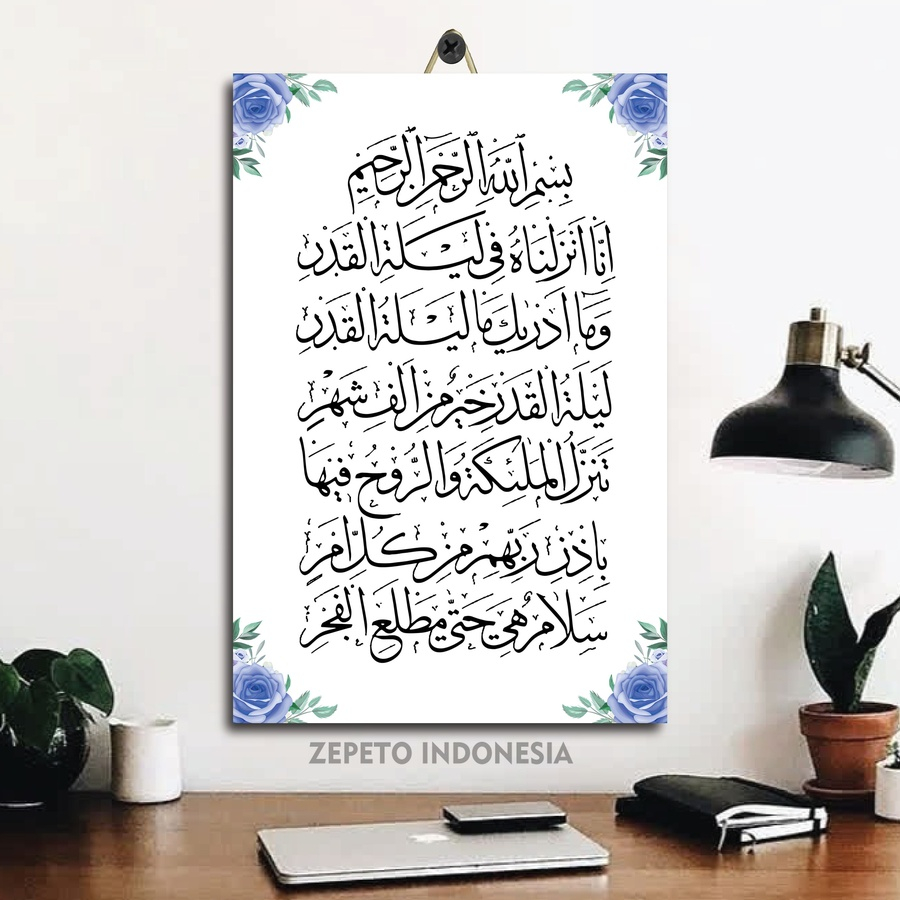 بِسْمِ ٱللَّهِ ٱلرَّحْمَٰنِ ٱلرَّحِيمِ
اِنَّا اَنْزَلْنَاهُ فِى لَيْلَةِ الْقَدْرِ
وَمَا اَدْرٰيكَ مَا لَيْلَةُ الْقَدْرِ
لَيْلَةُ الْقَدْرِ خَيْرٌ مِنْ اَلْفِ شَهْرٍ
تَنَزَّلُ الْمَلٰئِكَةُ وَالرُّوحُ فِيْهَا
بِاِذْنِ رَبِّهِمْ مِنْ كُلِّ اَمْرٍ
سَلَامٌ هِيَ حَتّٰى مَطْلَعِ الْفَجْرِ
ZEPETO INDONESIA